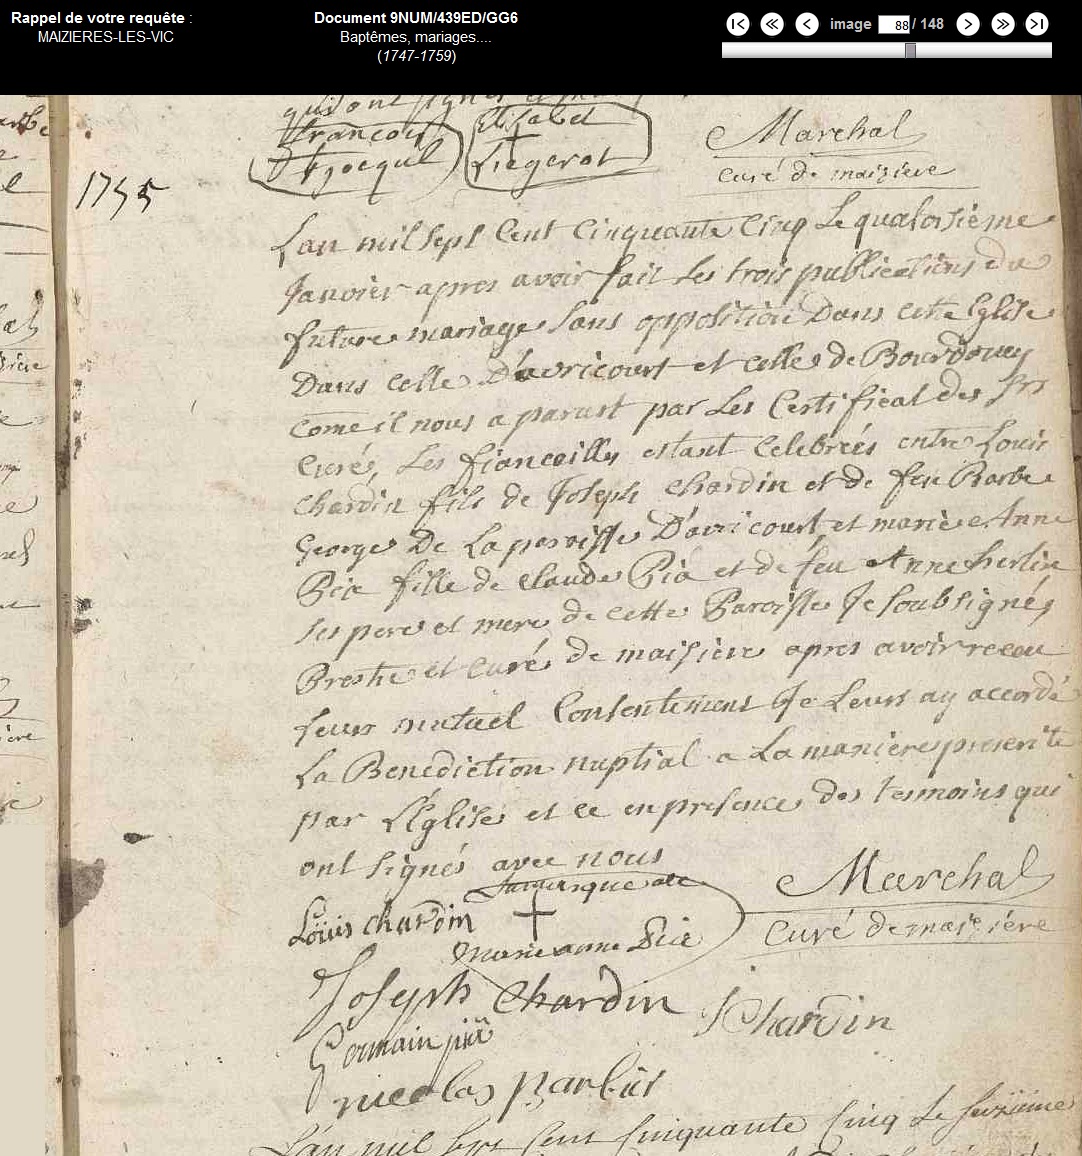 Rappel de votre requête :
MAIZIERES-LES-VIC
Document 9NUM/439ED/GG6
Baptêmes, mariages....
(1747-1759)
image 88 / 148
qui ont signés
francois
Elisabet
Liegerot
Marchal
curé de maiziere
1755
Lan mil sept Cent Cinquante Cinq Le quatorsieme
Janvier apres avoir fait Les trois publications du
future mariage sans opposition Dans cette Eglise
Dans celle D'avricourt et celle de Bourdonay
come il nous a parust par Les Certificat des Srs
Curés, Les fiancailles estant Celebrées entre Louis
Chardin fils de Joseph chardin et de feu Barbe
George De La paroisse D'avricourt et marie Anne
Pia fille de claude Pia et de feu Anne herlin
ses pere et mere de cette Paroisse Je soubsignés
Prestre et curé de maisiere apres avoir receu
Leurs mutuel Consentement Je Leurs ay accordé
La Benediction nuptial a La maniere prescrite
par L'Eglise et ce en presence des tesmoins qui
ont signés avec nous
La marque de
Louis chardin
Marie anne Pia
Marchal
Curé de maiziere
Joseph Chardin
J Chardin
Germain pia
nicolas
L'an mil sept Cent Cinquante Cinq Le seizieme